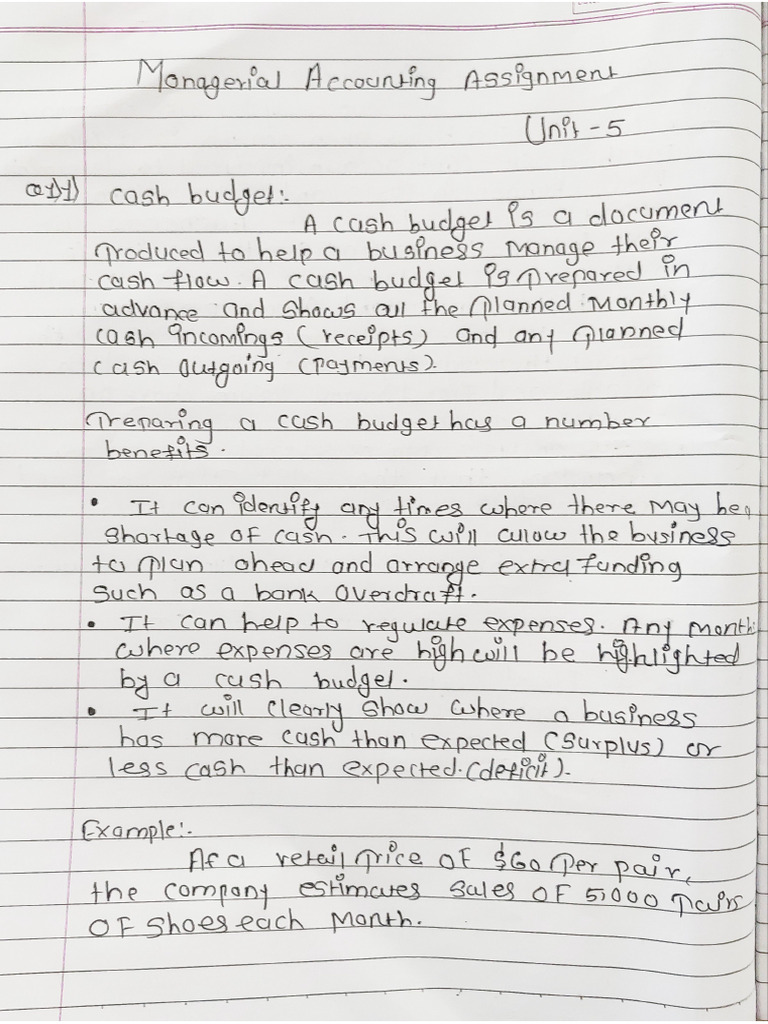 Managerial Accounting Assignment
Unit - 5
Q1)1) Cash budget:.
A cash budget is a document
produced to help a business manage their
cash flow. A cash budget is prepared in
advance and shows all the planned monthly
cash incomings (receipts) and any planned
cash outgoing (payments).
Preparing a cash budget has a number
benefits.
• It can identify any times where there may be a
shortage of cash. This will allow the business
to plan ahead and arrange extra funding
such as a bank overdraft.
• It can help to regulate expenses. Any month
where expenses are high will be highlighted
by a cash budget.
• It will clearly show where a business
has more cash than expected (surplus) or
less cash than expected. (deficit).
Example:.
At a retail price of $60 per pair,
the company estimates sales of 5,000 pairs
of shoes each month.